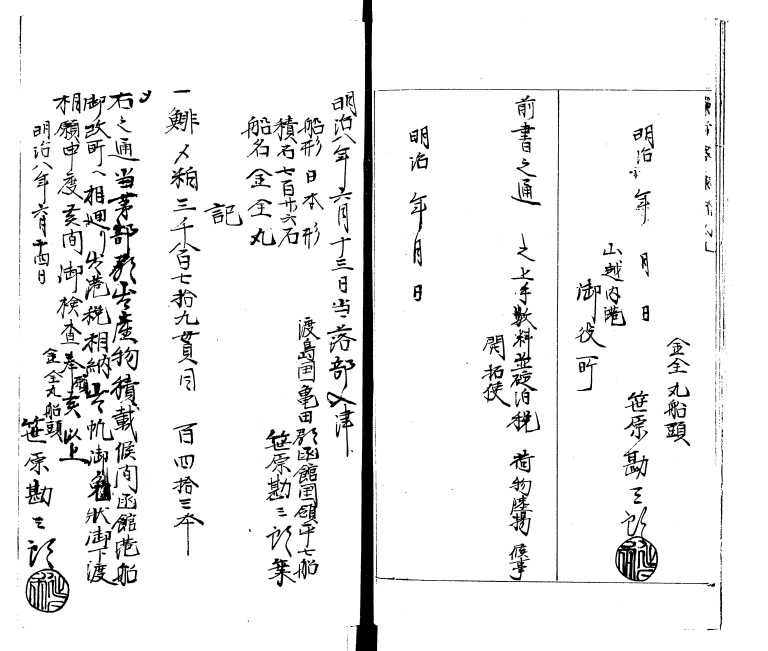 明治 年 月 日
金全丸船頭
笹原勘三郎
山越内港
御役所
前書之通 之上手数料並碇泊税 荷物陸揚候事
開拓使
明治 年 月 日
明治八年六月十三日当落部入津
船形日本形
積石七百廿六石
船名金全丸
渡島国亀田郡函館国領平七船
笹原勘三郎乗
記
一鯡〆粕三千八百七拾九貫目 百四拾三本
〆
右之通当茅部郡出産物積載候間函館港船
御改所へ相廻り出港税相納出帆御免状御下渡
相願申度其間御検査奉願候以上
明治八年六月十四日
金全丸船頭
笹原勘三郎